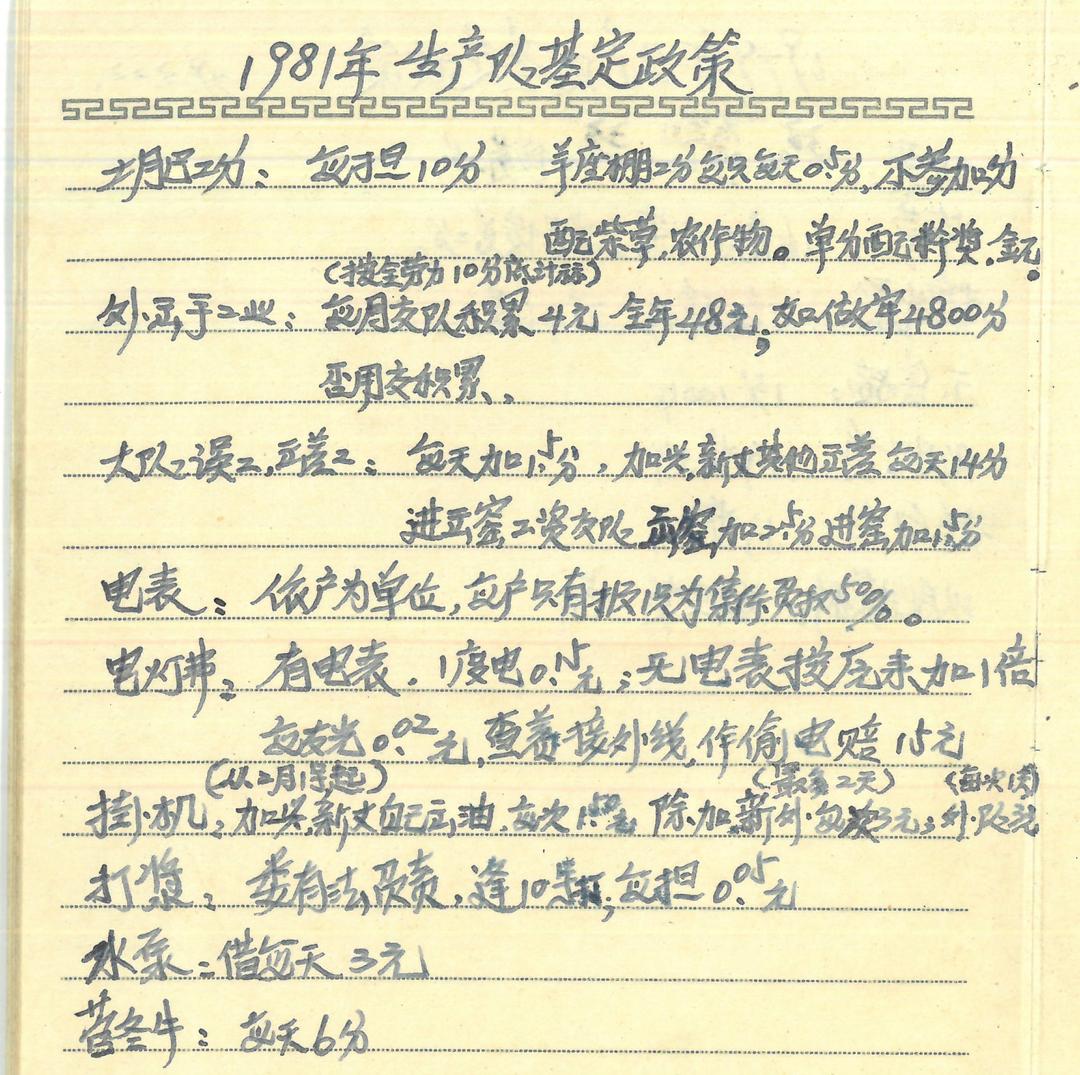 1981年生产队基定政策
土月巴工分：每担10分 羊座棚工分每只每天0.5分，不参加分
配柴草，农作物。单分配料奖.金元。
(按全劳力10分底计标)
外出手工业：每月交队积累4元 全年48元；如做牢4800分
否用交积累、.
大队误工，正差工：每天加1.5分，加兴，新丈其他正差每天14分
进正窑工资交队 正窑加2.5分进窑加1.5分
电表：依户为单位，每户只有报1只为集体负担50%。
电灯弗：有电表.1度电0.15元；无电表按原来加1倍
每支光0.02元，查着接外线，作偷电赔15元
(从2月1号起) (最多2天) (每次1天)
挂小机：加兴，新丈自己出油，每次1.50元 除加，新外每次3元；外队3元
打浆：娄有法负责，逢10号打；每担0.05元
水泵：借每天3元
管冬牛：每天6分